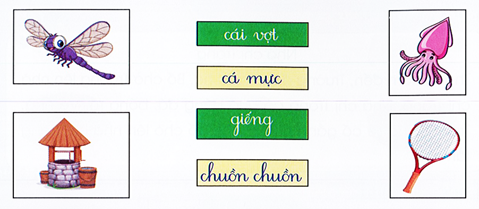 cái vợt
cá mực
giếng
chuồn chuồn